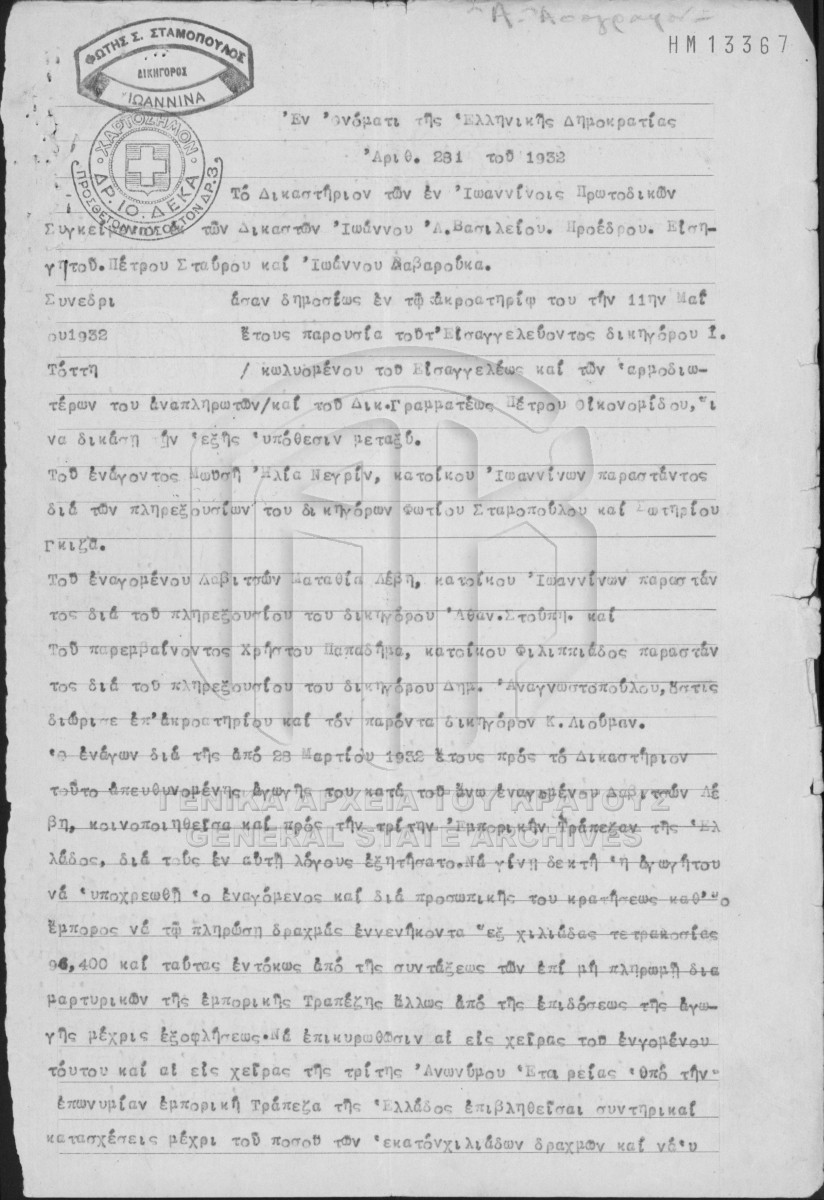 Α. Απογραφον
ΗΜ13367
ΦΩΤΗΣ Σ. ΣΤΑΜΟΠΟΥΛΟΣ
ΔΙΚΗΓΟΡΟΣ
ΙΩΑΝΝΙΝΑ
ΧΑΡΤΟΣΗΜΟΝ
ΔΡ. 10. ΔΕΚΑ
Ἐν Ὀνόματι τῆς Ἑλληνικῆς Δημοκρατίας
Ἀριθ. 281 τοῦ 1932
Τό Δικαστήριον τῶν ἐν Ἰωαννίνοις Πρωτοδικῶν
τῶν Δικαστῶν Ἰωάννου Ἀ.Βασιλείου. Προέδρου. Εἰση-
γητοῦ.Πέτρου Σταύρου καί Ἰωάννου Βαβαρούκα.
Συνεδρι άσαν δημοσίως ἐν τῷ ἀκροατηρίῳ του τήν 11ην Μαΐ
ου1932 ἔτους παρουσία τοῦτ'Εἰσαγγελεύοντος δικηγόρου Ι.
Τόττη / κωλυομένου του Εἰσαγγελέως καί τῶν ἁρμοδιω-
τέρων του ἀναπληρωτῶν/καί τοῦ Δικ.Γραμματέως Πέτρου Οἰκονομίδου,ἵ
να δικάσῃ ἥν ἑξῆς ὑπόθεσιν μεταξύ.
Τοῦ ἐνάγοντος Μωυσῆ Ἠλία Νεγρίν, κατοίκου Ἰωαννίνων παραστάντος
διά τῶν πληρεξουσίων του δικηγόρων Φωτίου Σταμοπούλου καί Σωτηρίου
Γκιζᾶ.
Τοῦ ἐναγομένου Δαβιτσῶν Ματαθία Λέβη, κατοίκου Ἰωαννίνων παραστάν
τος διά τοῦ πληρεξουσίου του δικηγόρου Ἀθαν.Στούπη. καί
Τοῦ παρεμβαίνοντος Χρήστου Παπαδήμα, κατοίκου Φιλιππιάδος παραστάν
τος διά τοῦ πληρεξουσίου του δικηγόρου Δημ. Ἀναγνωστοπούλου,ὅστις
διώρισε ἐπ'ἀκροατηρίου καί τόν παρόντα δικηγόρον Κ.Λιούμαν.
Ὁ ἐνάγων διά τῆς ἀπό 28 Μαρτίου 1932 ἔτους πρός τό Δικαστήριον
τοῦτο ἀπευθυνομένης ἀγωγῆς του κατά τοῦ ἄνω ἐναγομένου Δαβιτσῶν Λέ
βη, κοινοποιηθεῖσα καί πρός τήν τρίτην Ἐμπορικήν Τράπεζαν τῆς Ἑλ
λάδος, διά τούς ἐν αὐτῇ λόγους ἐξητήσατο.Νά γίνῃ δεκτή ἡ ἀγωγήτου
νά ὑποχρεωθῇ ὁ ἐναγόμενος καί διά προσωπικῆς του κρατήσεως καθ'ὅ
ἔμπορος νά τῷ πληρώσῃ δραχμάς ἐννενήκοντα ἕξ χιλιάδας τετρακοσίας
96,400 καί ταύτας ἐντόκως ἀπό τῆς συντάξεως τῶν ἐπί μή πληρωμῇ δια
μαρτυρικῶν τῆς ἐμπορικῆς Τραπέζης ἄλλως ἀπό τῆς ἐπιδόσεως τῆς ἀγω-
γῆς μέχρις ἐξοφλήσεως.Νά ἐπικυρωθῶσιν αἱ εἰς χεῖρας τοῦ ἐνγομένου
τούτου καί αἱ εἰς χεῖρας τῆς τρίτης Ἀνωνύμου Ἑται ρείας ὑπό τήν
ἐπωνυμίαν ἐμπορική Τράπεζα τῆς Ἑλλάδος ἐπιβληθεῖσαι συντηρικαί
κατασχέσεις μέχρι τοῦ ποσοῦ τῶν ἑκατόνχιλιάδων δραχμῶν καί νά'υ
ΓΕΝΙΚΑ ΑΡΧΕΙΑ ΤΟΥ ΚΡΑΤΟΥΣ
GENERAL STATE ARCHIVES